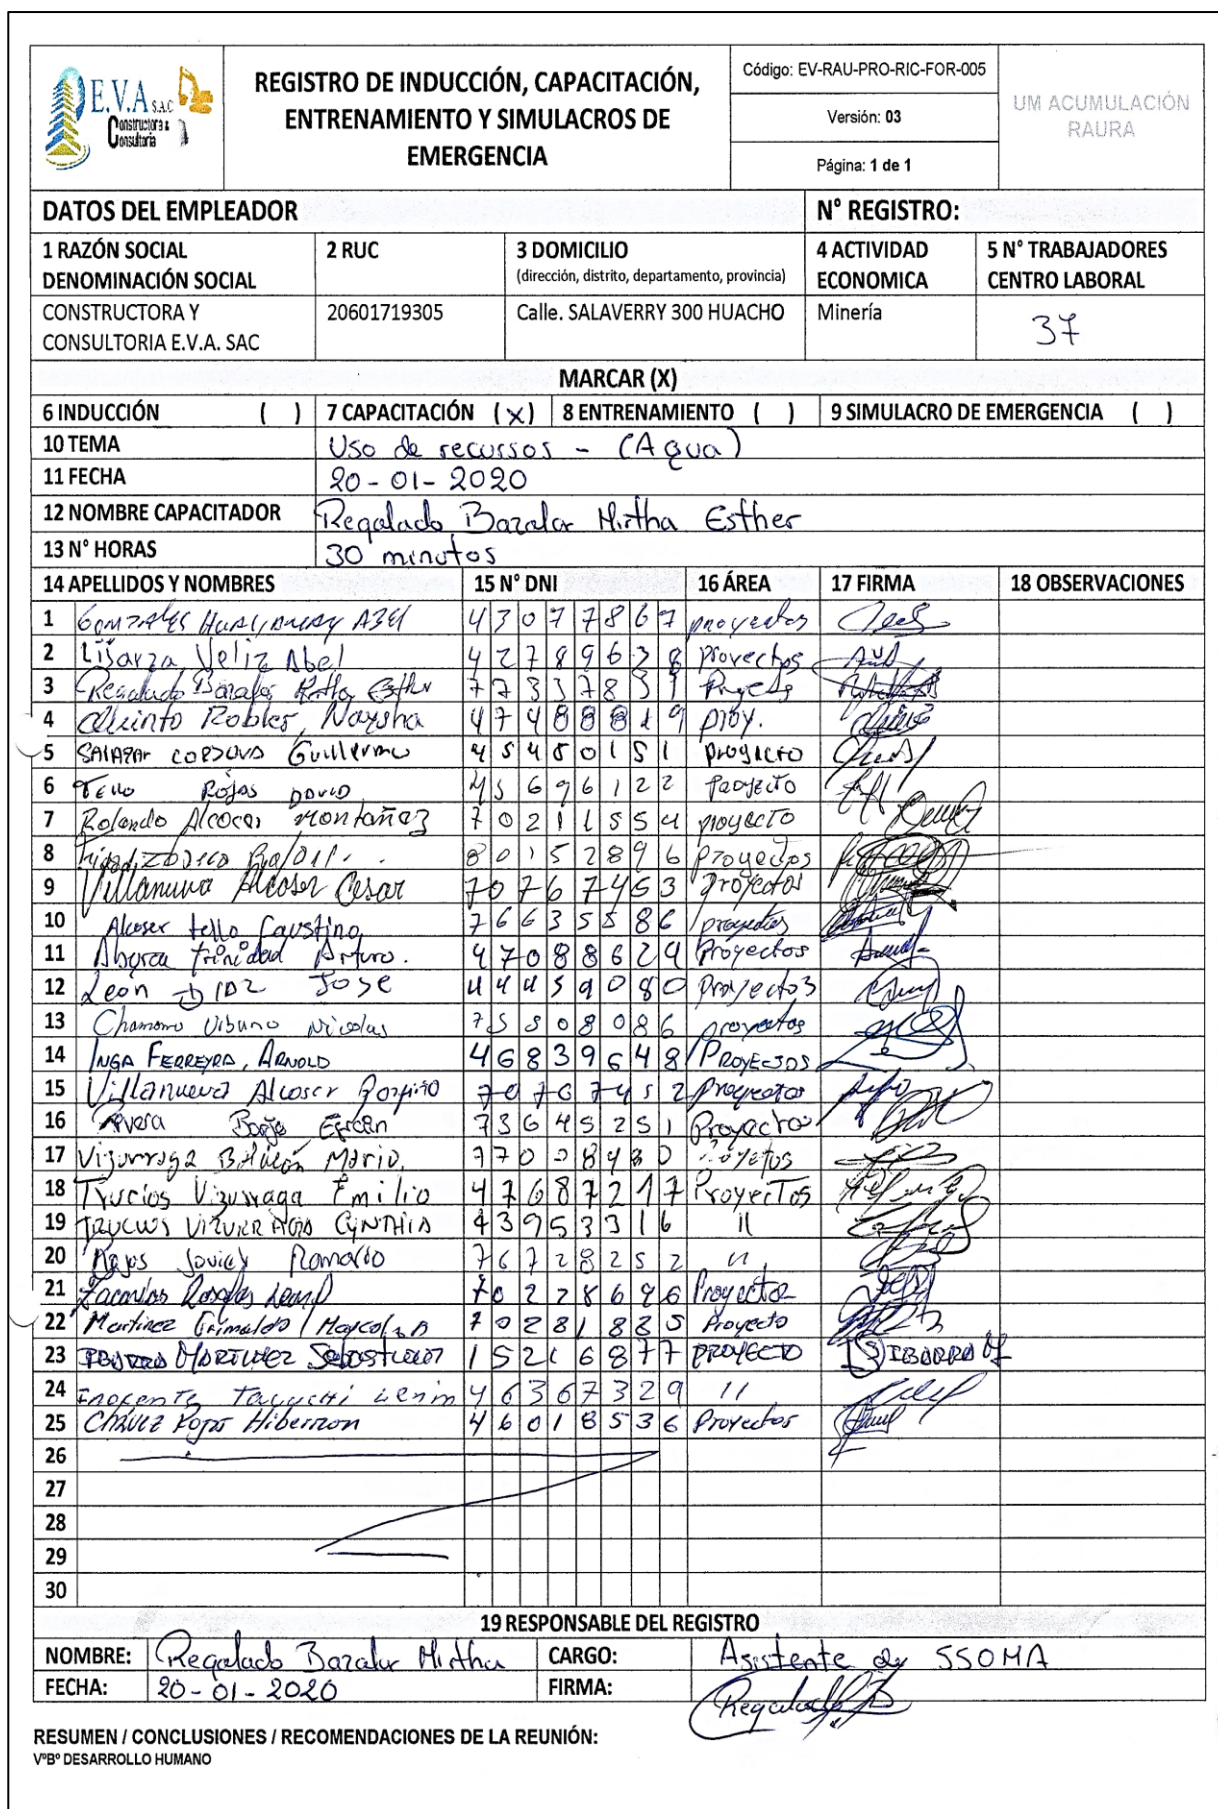 E.V.A S.A.C
Constructora &
Consultoria
REGISTRO DE INDUCCIÓN, CAPACITACIÓN,
ENTRENAMIENTO Y SIMULACROS DE
EMERGENCIA
Código: EV-RAU-PRO-RIC-FOR-005
Versión: 03
Página: 1 de 1
UM ACUMULACIÓN
RAURA
DATOS DEL EMPLEADOR N° REGISTRO:
1 RAZÓN SOCIAL
DENOMINACIÓN SOCIAL
2 RUC
3 DOMICILIO
(dirección, distrito, departamento, provincia)
4 ACTIVIDAD
ECONOMICA
5 N° TRABAJADORES
CENTRO LABORAL
CONSTRUCTORA Y
CONSULTORIA E.V.A. SAC
20601719305
Calle. SALAVERRY 300 HUACHO
Minería
37
MARCAR (X)
6 INDUCCIÓN ( ) 7 CAPACITACIÓN (x) 8 ENTRENAMIENTO ( ) 9 SIMULACRO DE EMERGENCIA ( )
10 TEMA Uso de recursos - (Agua)
11 FECHA 20-01-2020
12 NOMBRE CAPACITADOR Regalado Bazalar Mirtha Esther
13 N° HORAS 30 minutos
14 APELLIDOS Y NOMBRES 15 N° DNI 16 ÁREA 17 FIRMA 18 OBSERVACIONES
1 43077867 proyectos
2 Lizarza Veliz Abel 42789638 Proyectos
3 Regalado Esther
4 Quinto Robles, Naysha proy.
5 SALAZAR CORDOVA Guillermo 45480151 proyecto
6 Tello Rojas David 45696122 Proyecto
7 Rolando Alcocer Montañez 70211554 proyecto
8 80152896 proyectos
9 Villanueva Alcoser Cesar 70767453 Proyectos
10 Alcoser tello Faustino 76635586 proyectos
11 Abarca trinidad Arturo. 47088624 Proyectos
12 Leon DIAZ JOSE 44459080 Proyectos
13 Nicolas 75508086 proyectos
14 INGA FERREYRA, ARNOLD 46839648 PROYECTOS
15 Villanueva Alcoser 70767452 Proyectos
16 Rivera Borja Efrain 73645251 Proyectos
17 Mario
18 Trucios Vizurraga Emilio 47687217 Proyectos
19 TRUCIOS VIZURRAGA CYNTHIA 43953316 "
20 Rojas Romario 76728252 "
21 Zacarias Rosales 70228696 Proyecto
22 Martinez Grimaldo 70281835 Proyecto
23 IBARRA MARTINEZ Sebastian PROYECTO IBARRA M
24 Inocente Lenin 46367329 "
25 CHAVEZ Rojas Hiberzon 46018536 Proyectos
26
27
28
29
30
19 RESPONSABLE DEL REGISTRO
NOMBRE: Regalado Bazalar Mirtha CARGO: Asistente de SSOMA
FECHA: 20-01-2020 FIRMA: Regalado B
RESUMEN / CONCLUSIONES / RECOMENDACIONES DE LA REUNIÓN:
V°B° DESARROLLO HUMANO